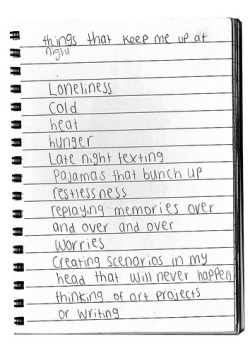 things that keep me up at
night
Loneliness
cold
heat
hunger
Late night texting
Pajamas that bunch up
restlessness
replaying memories over
and over and over
Worries
Creating scenarios in my
head that will never happen
thinking of art projects
or writing